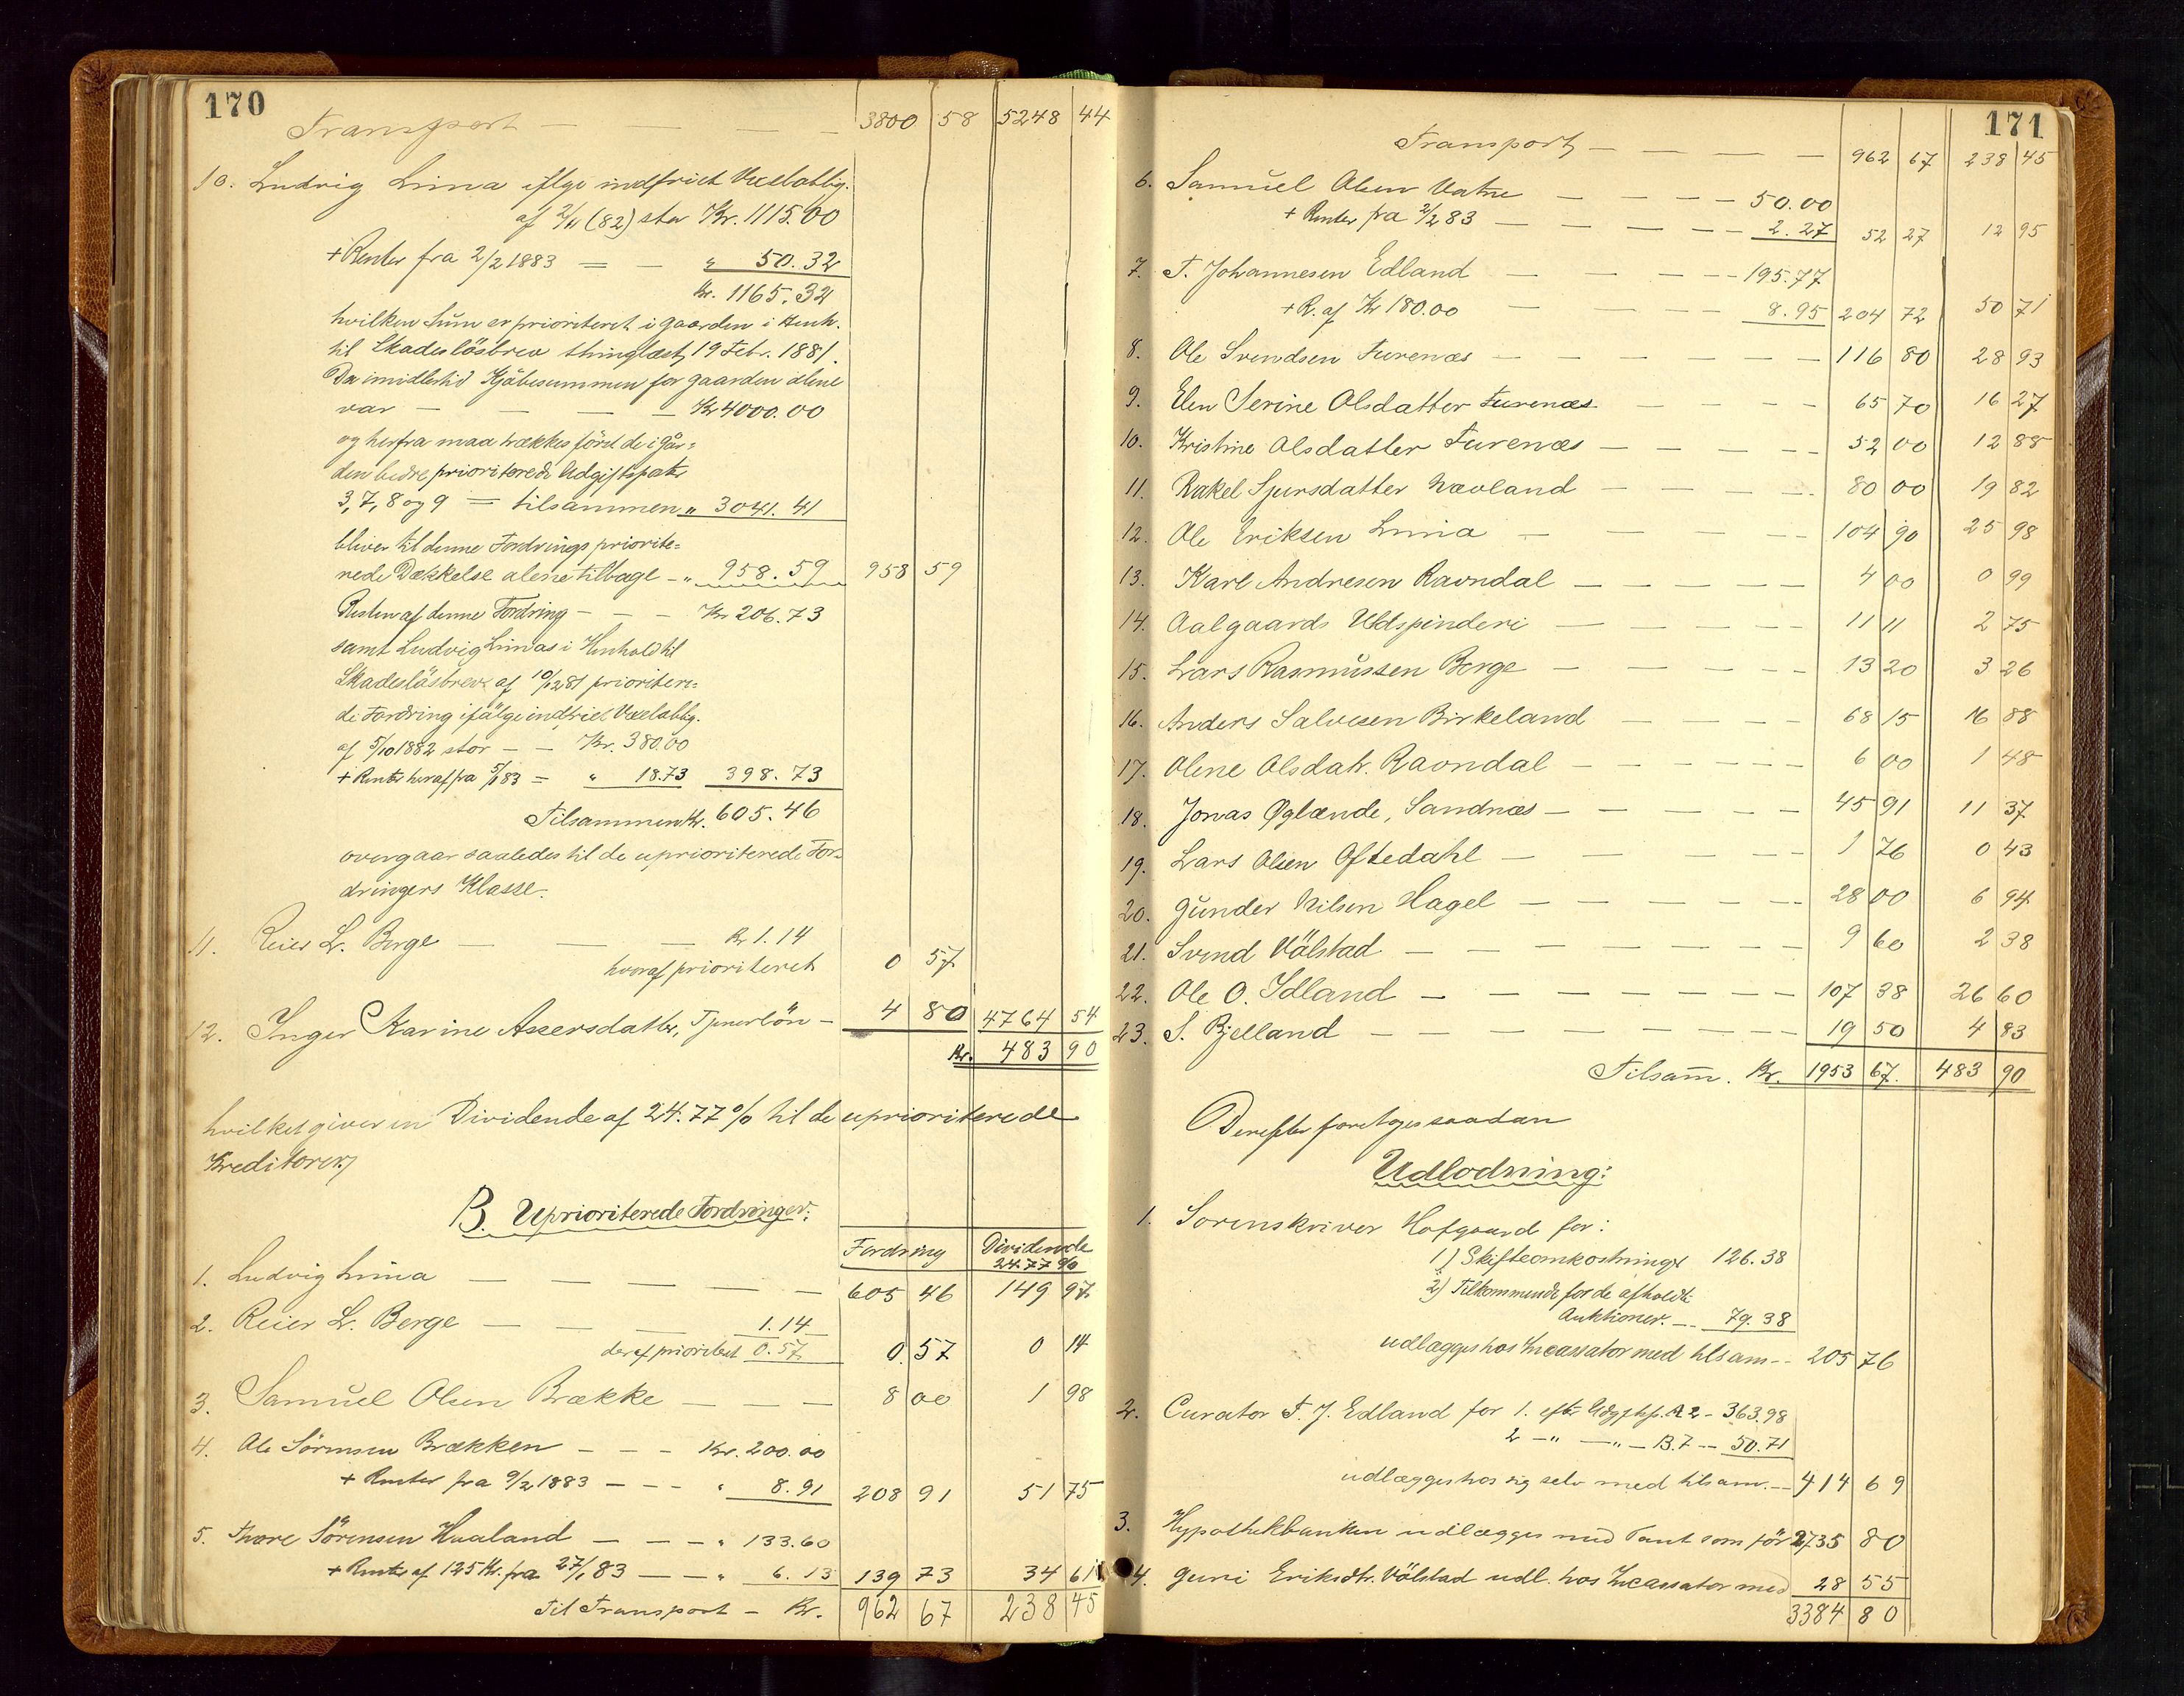 170
Transport — — — — 3800 58 5248 44
10. Ludvig Lima iflge indfriet Vexeloblig.
af 2/11 (82) stor Kr. 1115.00
+ Renter fra 2/2 1883 = — " 50.32
Kr. 1165.32
hvilken Sum er prioriteret i gaarden i Henh.
til Skadesløsbrev thinglæst 19 Febr. 1881.
Da imidlertid Kjøbesummen for gaarden alene
var — — — — Kr 4000.00
og herfra maa trækkes först de i Går=
den bedre prioriterede Udgiftspster
3, 7, 8 og 9 = tilsammen " 3041.41
bliver til denne Fordrings priorite=
rede Dækkelse alene tilbage — " 958.59 958 59
Resten af denne Fordring — — — Kr 206.73
samt Ludvig Limas i Henhold til
Skadesløsbrev af 10/12 81 prioritere=
de Fordring ifølge indfriet Vexeloblig.
af 5/10 1882 stor — — Kr. 380.00
+ Renter heraf fra 5/1 83 = " 18.73 398.73
Tilsammen Kr. 605.46
overgaar saaledes til de uprioriterede For=
dringers Klasse.
11. Reier L. Berge — — — Kr 1.14
hvoraf prioriteret 0 57
12. Inger Karine Assersdatter, Tjenerlön — 4 80 4764 54
Kr. 483 90
hvilket giver en Dividende af 24.77 % til de uprioriterede
Kreditorer.
B. Uprioriterede Fordringer:
Fordring Dividende
24.77 %
1. Ludvig Lima — — — — — 605 46 149 97
2. Reier L. Berge — — — 1.14
deraf prioritert 0.57 0 57 0 14
3. Samuel Olsen Brække — — — 8 00 1 98
4. Ole Sörensen Brækken — — — Kr. 200.00
+ Renter fra 9/2 1883 — — — " 8.91 208 91 51 75
5. Thore Sörensen Haaland — — — " 133.60
+ Renter af 125 Kr. fra 27/1 83 — — " 6.13 139 73 34 61
Til Transport — Kr. 962 67 238 45
171
Transport — — — — — 962 67 238 45
6. Samuel Olsen Vatne — — — — 50.00
+ Renter fra 2/2 83 — — — — — 2.27 52 27 12 95
7. T. Johannesen Edland — — — — 195.77
+ R. af Kr 180.00 — — — — 8.95 204 72 50 71
8. Ole Svendsen Furenæs — — — — — — 116 80 28 93
9. Elen Serine Olsdatter Furenæs — — — — 65 70 16 27
10. Kristine Olsdatter Furenæs — — — — — 52 00 12 88
11. Rakel Sjursdatter Nævland — — — — — 80 00 19 82
12. Ole Eriksen Lima — — — — — 104 90 25 98
13. Karl Andresen Ravndal — — — — — 4 00 0 99
14. Aalgaards Uldspinderi — — — — — 11 11 2 75
15. Lars Rasmussen Berge — — — — — 13 20 3 26
16. Anders Salvesen Birkeland — — — — 68 15 16 88
17. Olene Olsdatr. Ravndal — — — — — — 6 00 1 48
18. Jonas Øglænde, Sandnæs — — — — — 45 91 11 37
19. Lars Olsen Oftedahl — — — — — 1 76 0 43
20. Gunder Nilsen Hagel — — — — — — 28 00 6 94
21. Svend Völstad — — — — — — — 9 60 2 38
22. Ole O. Idland — — — — — — — — 107 38 26 60
23. S. Bjelland — — — — — — — — 19 50 4 83
Tilsam̄. Kr. 1953 67 483 90
Derefter foretoges saadan
Udlodning:
1. Sorenskriver Hofgaard for:
1) Skifteomkostninger 126.38
2) Tilkommende for de afholdte
Auktioner — 79.38
udlægges hos Incassator med tilsam — 205 76
2. Curator T. J. Edland for 1. eftr Udgiftsp. A 2 — 363.98
2 — " — " — B. 7 — 50.71
udlægges hos sig selv med tilsam. — 414 69
3. Hypothekbanken udlægges med Pant som för 2735 80
4. Guri Eriksdtr. Völstad udl. hos Incassator med 28 55
3384 80